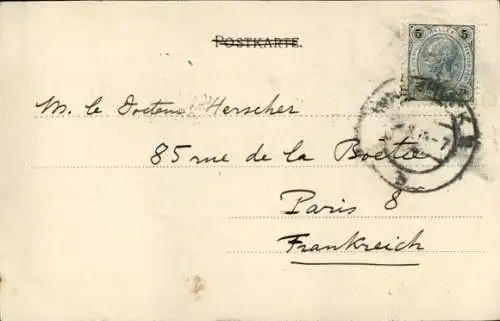 POSTKARTE.
5 5
M. le Docteur Herscher
85 rue de la Boetie
Paris 8
Frankreich